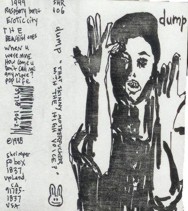 1999
Raspberry Beret
Erotic City
THE
BEAUTIFUL ONES
When U
were mine
How come U
Don't call me
anymore?
Pop Life
©1998
shrimper
po box
1837,
upland,
CA
91785-
1837
USA
SHR
106
dump "that skinny motherfucker
with the high voice?"
dump